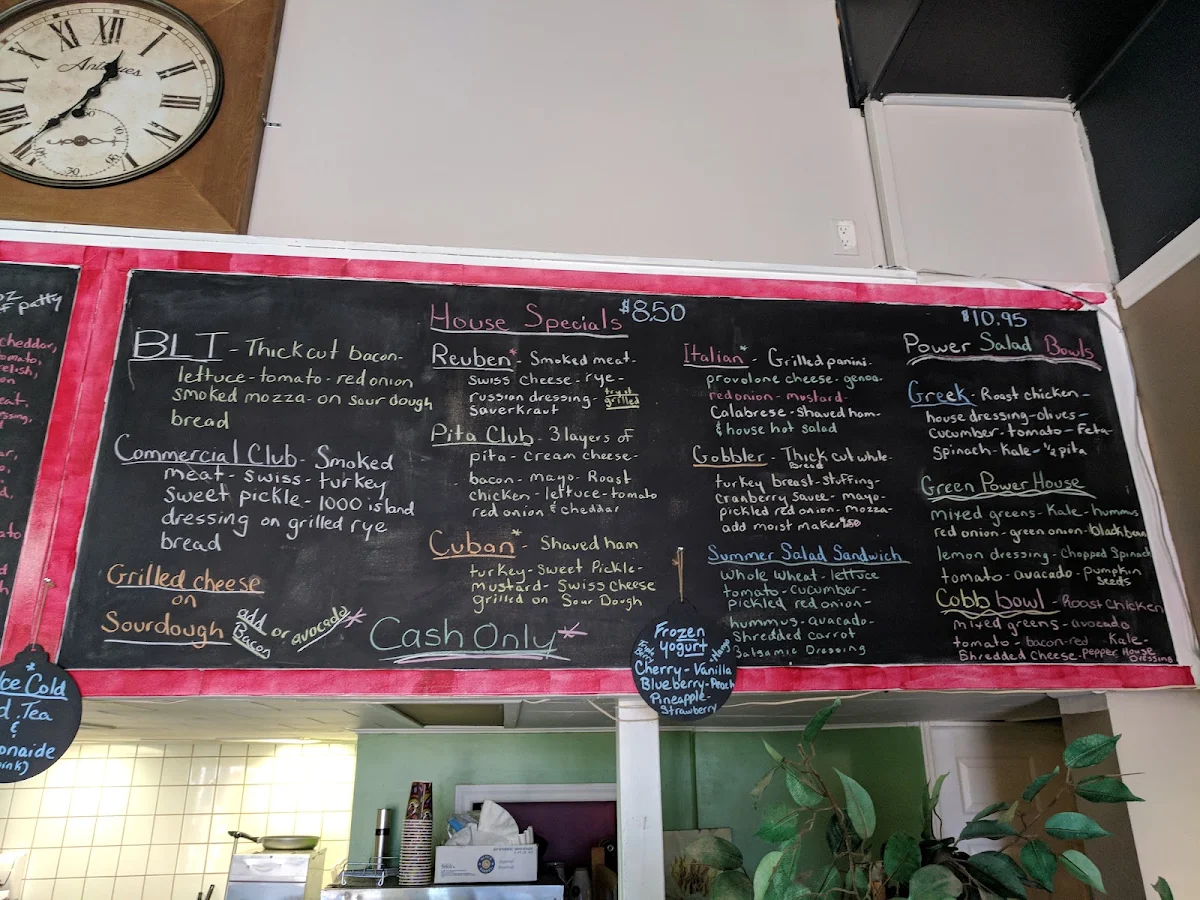 XII
I
II
III
IIII
XI
X
30
oz
patty
cheddar,
tomato,
relish,
House Specials $8.50
BLT - Thick cut bacon-
lettuce-tomato-red onion
smoked mozza-on sour dough
bread
Commercial Club - Smoked
meat-swiss-turkey
sweet pickle-1000 island
dressing on grilled rye
bread
Grilled cheese
on
Sourdough
add
Bacon
or avocado*
Cash Only*
Reuben* - Smoked meat-
swiss cheese-rye-
russian dressing-
grilled
sauerkraut
Pita Club - 3 layers of
pita-cream cheese-
bacon-mayo-Roast
chicken-lettuce-tomato
red onion & cheddar
Cuban* - Shaved ham
turkey-Sweet Pickle-
mustard-Swiss Cheese
grilled on Sour Dough
Italian* - Grilled panini-
provolone cheese-genoa-
red onion-mustard-
Calabrese-Shaved ham-
& house hot salad
Gobbler - Thick cut whole-
Bread
turkey breast-stuffing-
cranberry sauce-mayo-
pickled red onion-mozza-
add moist maker
Summer Salad Sandwich
whole wheat-lettuce
tomato-cucumber-
pickled red onion-
hummus-avacado-
Shredded carrot
Balsamic Dressing
$10.95
Power Salad Bowls
Greek - Roast chicken-
house dressing-olives-
cucumber-tomato-Feta-
Spinach-Kale-½ pita
Green Power House
mixed greens-Kale-hummus
red onion-green onion-blackbean
lemon dressing-Chopped Spinach
tomato-avacado-pumpkin
seeds
Cobb bowl - Roast Chicken
mixed greens-avocado
tomato-bacon-red Kale-
Shredded Cheese-pepper House
Dressing
Frozen
Yogurt
Mango
Cherry-Vanilla
Blueberry-Peach
Pineapple-
Strawberry
Ice Cold
Tea
&